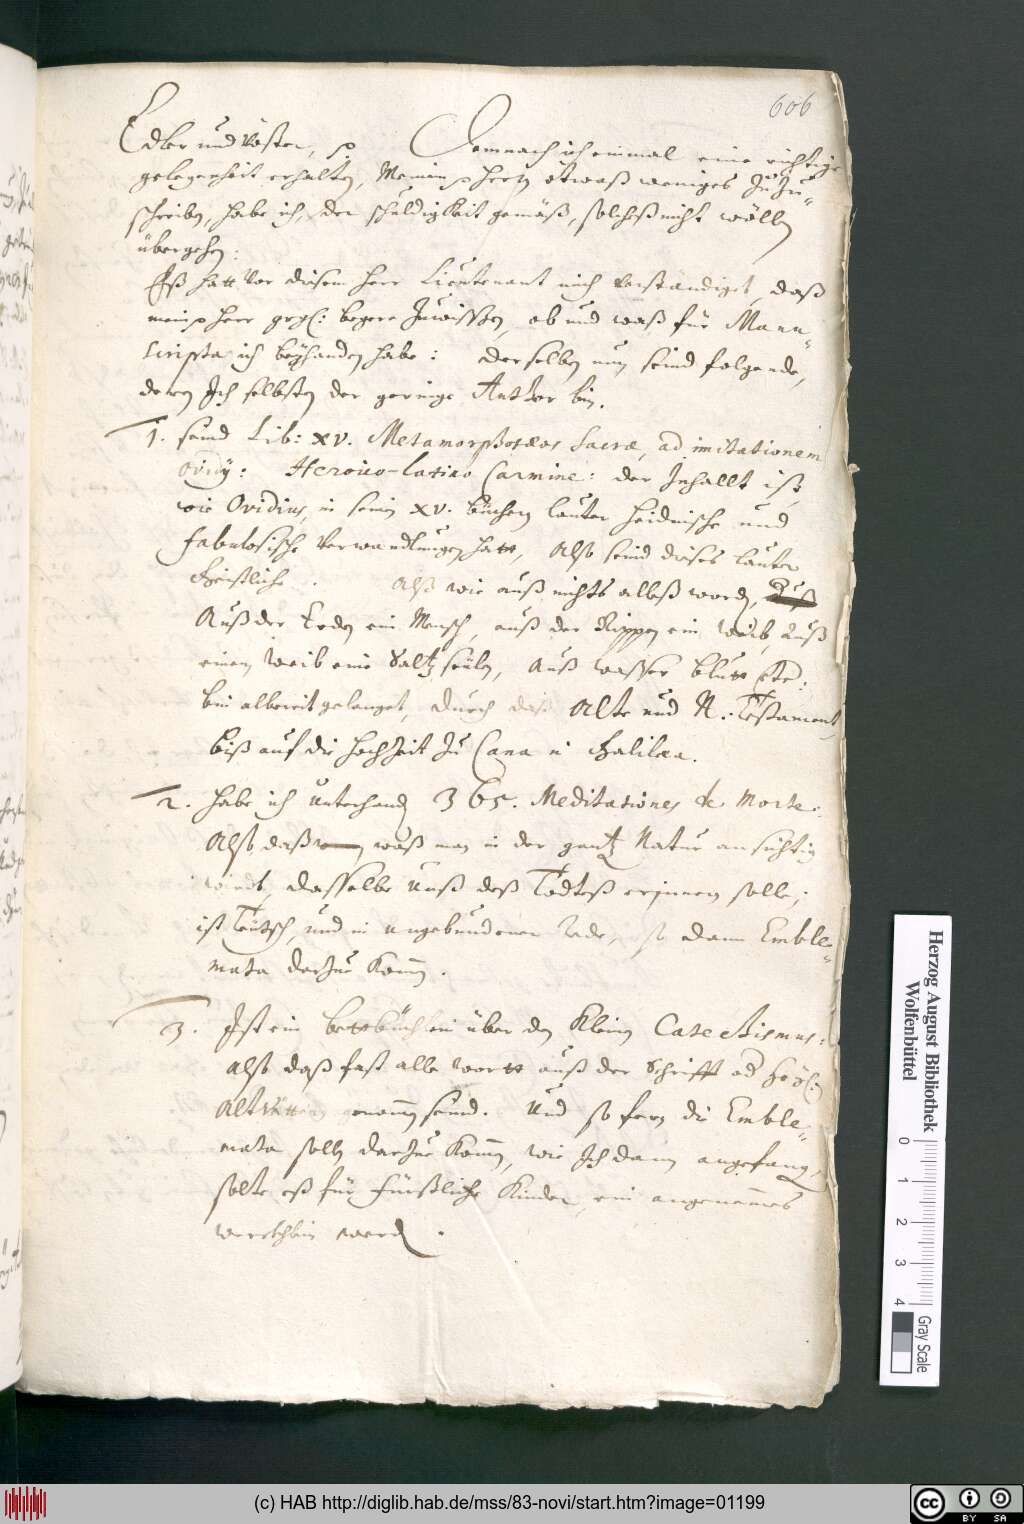 606
Edler und Vöster, p Demnach ich einmal eine richtige
gelegenheit erhalten, Meinem p herrn etwaß weniges Zu Zu-
schreiben, habe ich, der schuldigkeit gemäß, solcheß nicht wöllen
übergehen:
Eß hatt vor diesem herr Lieutenant mich verständiget, daß
mein p herr begere Zuwissen, ob und waß für Manu-
scripta ich beyhanden habe: derselben nun seind folgende,
deren Ich selbsten der geringe Author bin.
1. seind Lib: XV. Metamorphoseos Sacrae, ad imitationem
Ovidij: Heroico-latino Carmine: der Inhallt ist,
wie Ovidius, in seinen XV. büchern lauter heidnische und
fabulosische Verwandlungen hatt, also seind dieses lauter
Geistliche. Alß wie auß nichts alleß worden,
Auß der Erden ein Mensch, auß der Rippen ein Weib, Auß
einem Weib eine Saltzseülen, Auß wasser blutt etc:
bin albereit gelanget, durch daß Alte und N. Testament,
biß auf die hochzeit Zu Cana in Galilaea.
2. habe ich unterhanden 365. Meditationes de Morte:
Also daß waß man in der gantzen Natur ansichtig
wirdt, dasselbe unß deß Todteß erinnern solle;
ist Teütsch, und in ungebundener rede, so dann Emble-
mata darzue kommen.
3. Ist ein bettbüchlein über den kleinen Catechismus:
also daß fast alle wortt auß der Schrifft
Altvättern genommen seind. Und so fern die Emble-
mata sollen darzue kommen, wie Ich dann angefangen,
solte eß für Fürstliche Kinder, ein angenemes
werckhlein werden.
Herzog August Bibliothek
Wolfenbüttel
0 1 2 3 4
Gray Scale
(c) HAB http://diglib.hab.de/mss/83-novi/start.htm?image=01199
cc BY SA